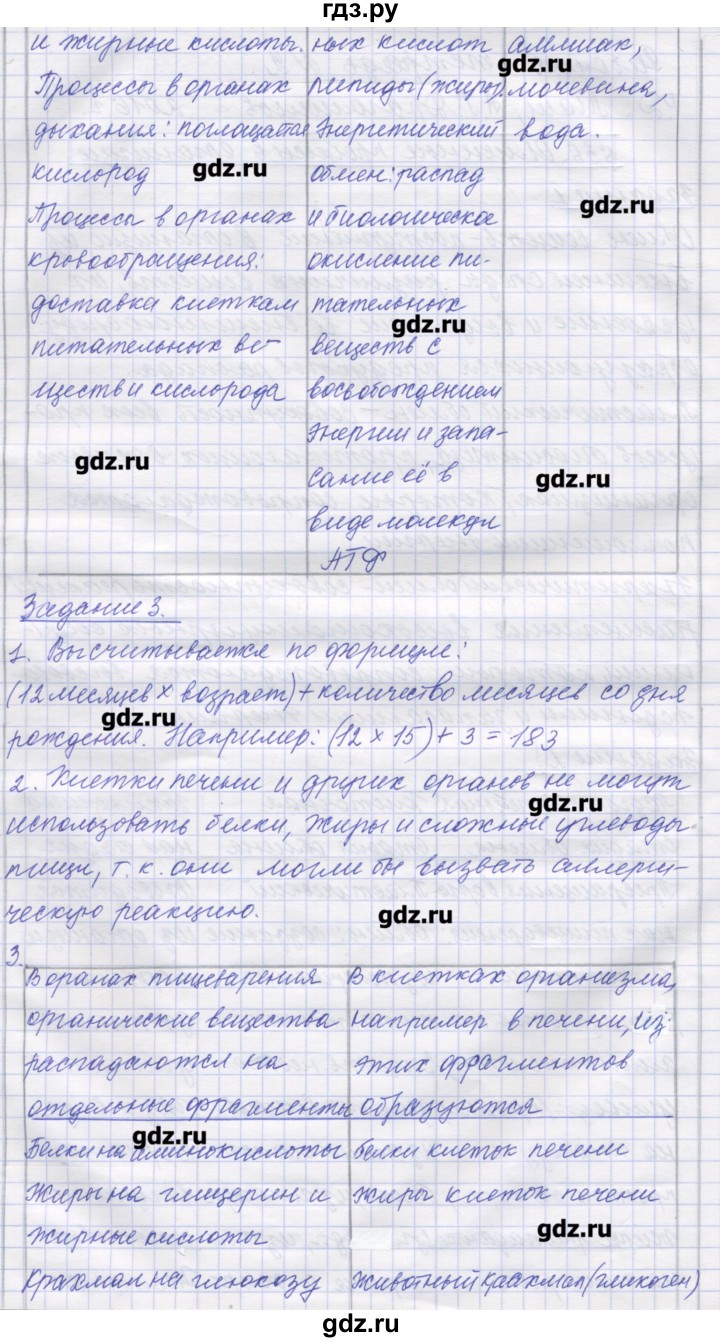 гдз.ру
и жирные кислоты. ных кислот аммиак,
gdz.ru
Процессы в органах липиды (жиры). мочевина,
дыхания: поглощается Энергетический вода.
gdz.ru
кислород обмен: распад
gdz.ru
Процессы в органах и биологическое
кровообращения: окисление пи-
доставка клеткам тательных
gdz.ru
питательных ве- веществ с
ществ и кислорода восвобождением
энергии и запа-
gdz.ru
сание её в
gdz.ru
виде молекул
АТФ
Задание 3.
1. Высчитывается по формуле:
(12 месяцев × возраст) + количество месяцев со дня
gdz.ru
рождения. Например: (12 × 15) + 3 = 183
2. Клетки печени и других органов не могут
gdz.ru
использовать белки, жиры и сложные углеводы
пищи, т.к. они могли бы вызвать аллерги-
ческую реакцию.
gdz.ru
3.
В оранах пищеварения В клетках организма,
органические вещества например в печени, из
распадаются на этих фрагментов
отдельные фрагменты образуются
gdz.ru
Белки на аминокислоты белки клеток печени
Жиры на глицерин и жиры клеток печени
gdz.ru
жирные кислоты
Крахмал на глюкозу животный крахмал (гликоген)
gdz.ru